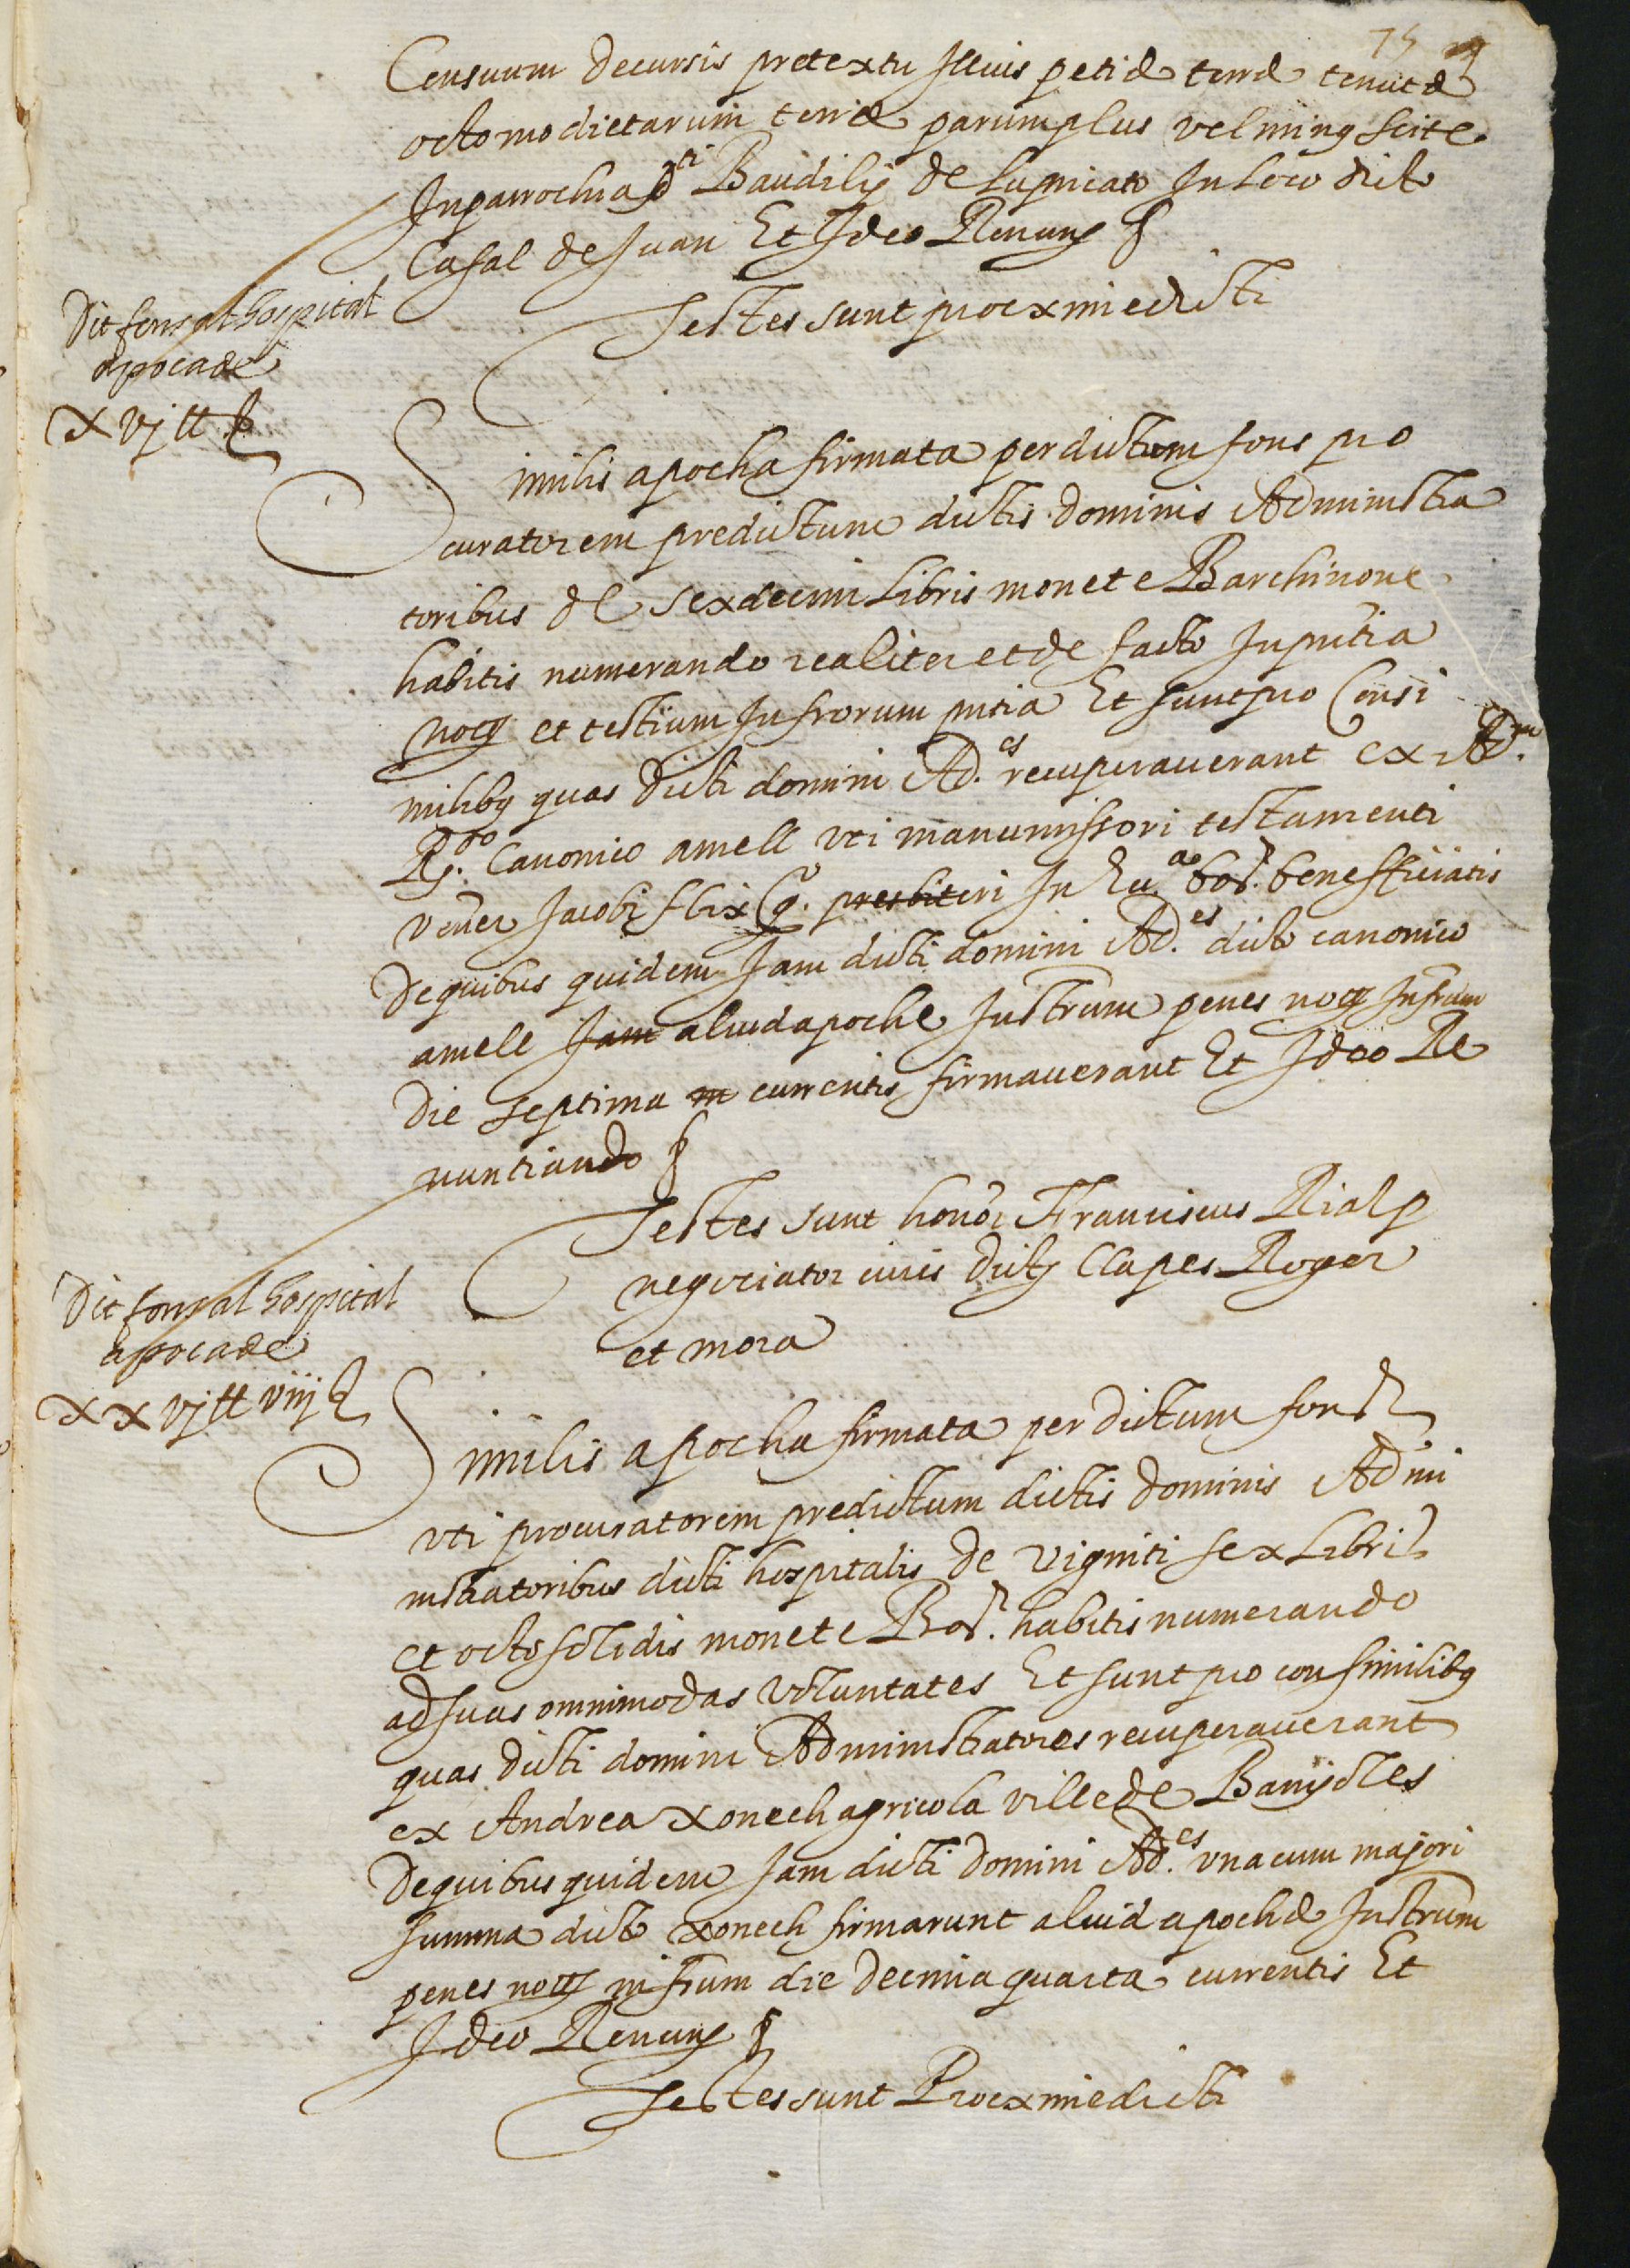 75
Censuum decursis pretextu Illius petiæ terræ tenutæ
octo modietarum terræ parum plus vel minus scite
In parrochia Sti Baudilij de Lupricato In loco dicto
Casal de Juan Et Ideo Renuns §
Testes sunt proxime dicti
Dit fons al hospital
apoca de
xvj ll s
Similis apocha firmata per dictum fons pro
curatorem predictum dictis dominis Administra
toribus de sexdecim Libris monete Barchinone
habitis numerando realiter et de facto In pntia
noty et testium Infrorum pntia Et sunt pro Consi
milibus quas dicti domini Ad.es recuperauerant ex Ad.m
R.do Canonico amell vti manumissori testamenti
vener Jacobi flix q. presbiteri In Eccl.a bar. beneffitiatis
De quibus quidem Jam dicti domini Ad.es dicto canonico
amell Jam aliud apoche Instrum penes noty Infrum
Die septima m currentis firmauerant Et Ideo Re
nuntiando §
Testes sunt honor Franciscus Rialp
negociator ciuis dictus Clapes Roger
et mora
Dit fons al hospital
apoca de
xxvj ll viij s
Similis apocha firmata per dictum fons
vti procuratorem predictum dictis dominis Admi
nistratoribus dicti hospitalis de viginti sex Libris
et octo solidis monete Bar. habitis numerando
ad suas omnimodas voluntates Et sunt pro consimilibus
quas dicti domini Administratores recuperauerant
ex Andrea xonech agricola ville de Banyoles
De quibus quidem Jam dicti domini Ad.es vna cum majori
summa dicto xonech firmarunt aluid apochæ Instrum
penes noty infrum die decima quarta currentis Et
Ideo Renuns §
Testes sunt Proxime dicti